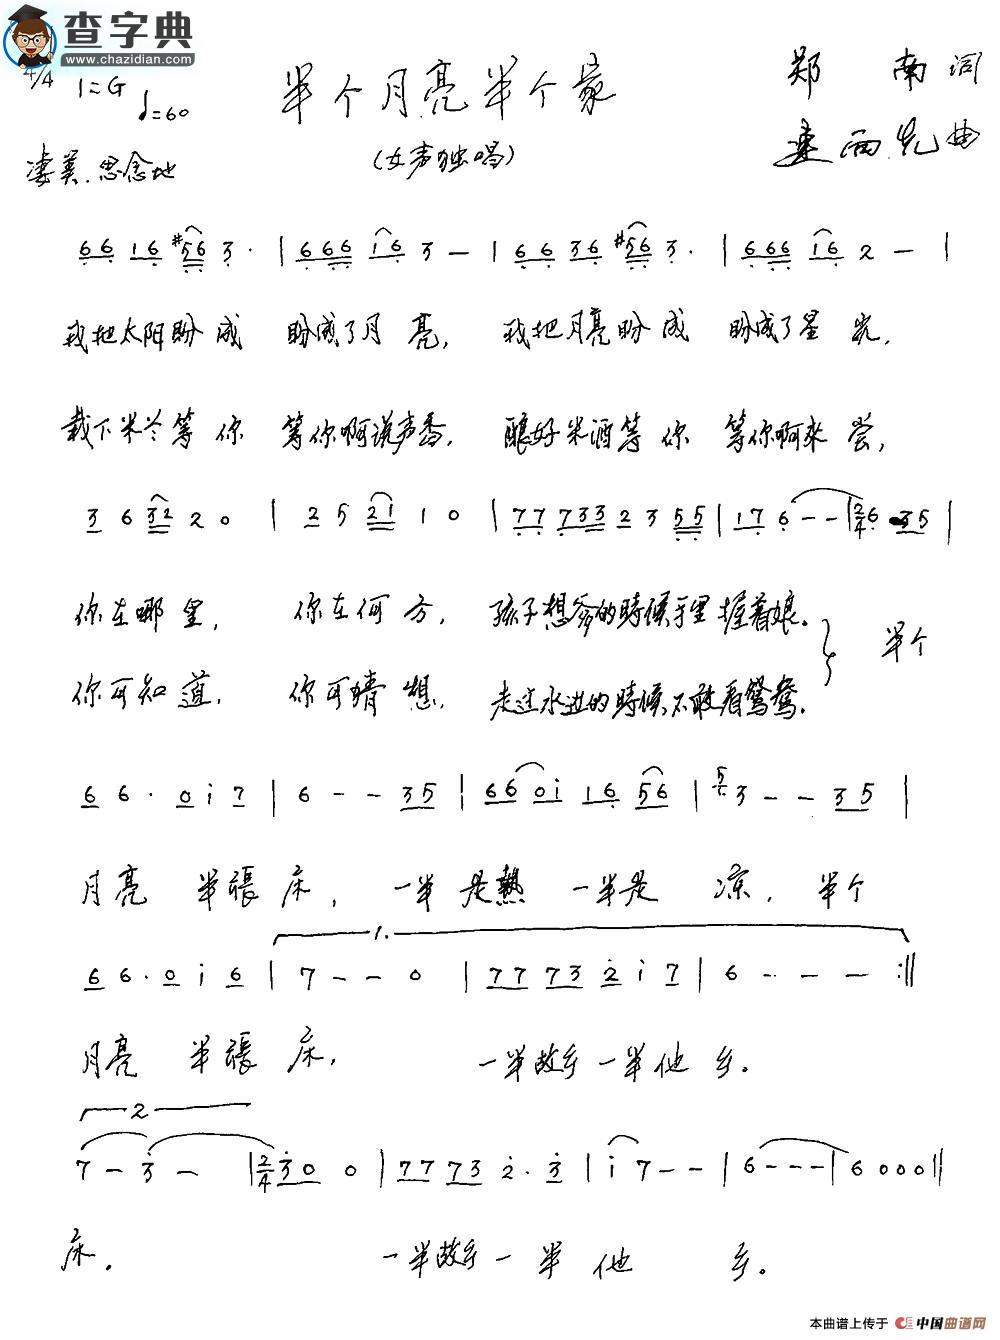 查字典
www.chazidian.com
4/4 1=G
♩=60
半个月亮半个家
郑南词
(女声独唱)
西 曲
凄美.思念地
6 6 1 6 #5 6 3 · | 6 6 6 1 6 3 — | 6 6 3 6 #5 6 3 · | 6 6 6 1 6 2 — |
我把太阳盼成 盼成了月亮, 我把月亮盼成 盼成了星光,
栽下米兰等你 等你啊说声香, 酿好米酒等你 等你啊来尝,
3 6 3 2 2 0 | 2 5 2 1 1 0 | 7 7 7 3 3 2 3 5 5 | 1 7 6 - - | 2/4 6 3 5 |
你在哪里, 你在何方, 孩子想爹的時候手里握着娘。
半个
你可知道, 你可猜想, 走过水边的時候不敢看鸳鸯.
6 6 · 0 i 7 | 6 - - 3 5 | 6 6 0 i 1 6 5 6 | 5 3 - - 3 5 |
月亮 半張床, 一半是熱 一半是凉, 半个
1.
6 6 · 0 i 6 | 7 - - 0 | 7 7 7 3 2 i 7 | 6 - - - :||
月亮 半張床, 一半故乡一半他乡。
2
7 - 3 - | 2/4 3 0 0 | 7 7 7 3 2 · 3 | i 7 - - | 6 - - - | 6 0 0 0 ||
床。 一半故乡一半他乡。
本曲谱上传于 中国曲谱网